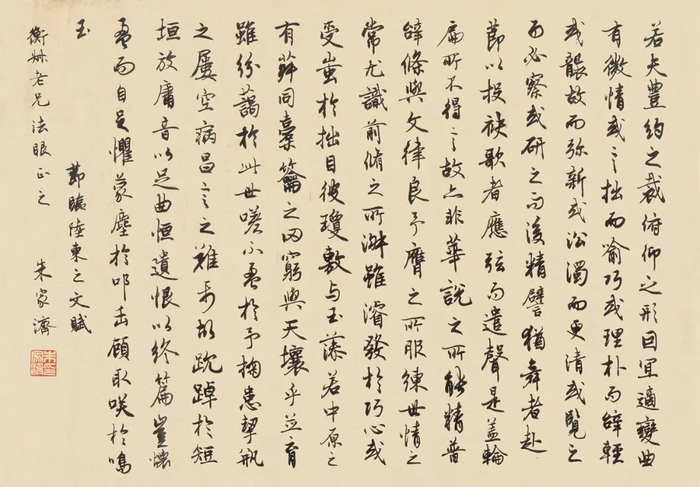 若夫豐約之裁俯仰之形因宜適變曲
有微情或言拙而喻巧或理朴而辭輕
或襲故而弥新或沿濁而更清或覽之
而必察或研之而後精譬猶舞者赴
節以投袂歌者應弦而遣聲是蓋輪
扁所不得言故亦非華說之所能精普
辭條與文律良予膺之所服練世情之
常尤識前脩之所淑雖濬發於巧心或
受蚩於拙目彼瓊敷与玉藻若中原之
有菽同橐籥之罔窮與天壤乎並育
雖紛藹於此世嗟不盈於予掬患挈瓶
之屢空病昌言之難屬故踸踔於短
垣放庸音以足曲恒遺恨以終篇豈懷
盈而自足懼蒙塵於叩缶顧取咲於鳴
玉
節臨陸柬之文賦
衡叔老兄法眼正之 朱家濟